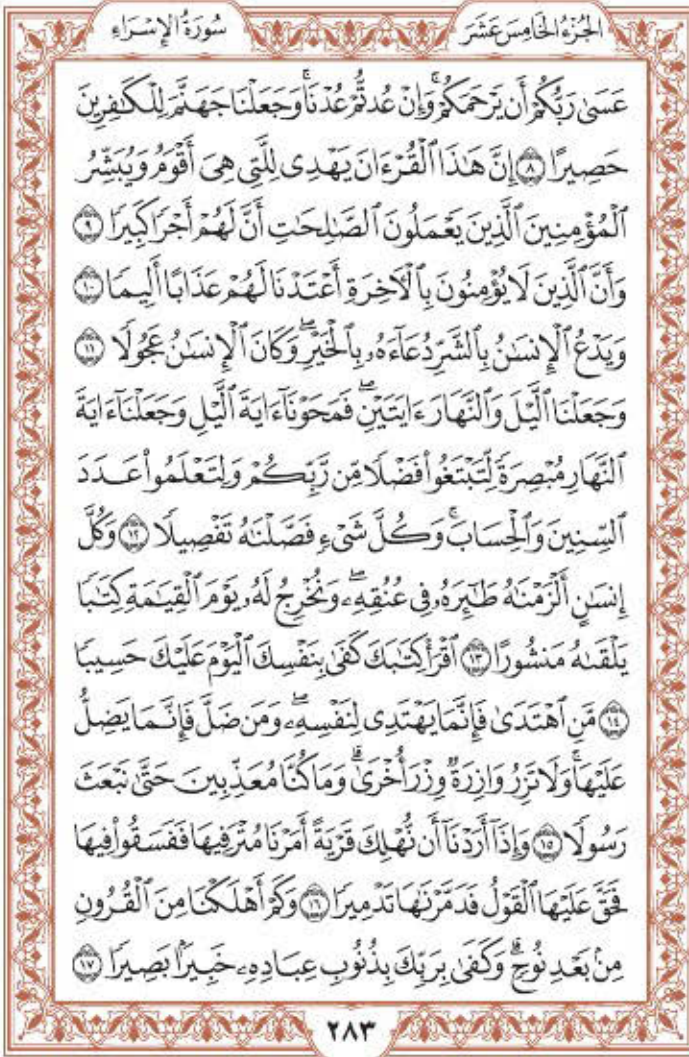 سُورَةُ الإِسْرَاءِ
الجُزْءُ الخَامِسَ عَشَرَ
عَسَىٰ رَبُّكُمْ أَن يَرْحَمَكُمْ ۚ وَإِنْ عُدتُّمْ عُدْنَا ۘ وَجَعَلْنَا جَهَنَّمَ لِلْكَـٰفِرِينَ
حَصِيرًا ٨ إِنَّ هَـٰذَا ٱلْقُرْءَانَ يَهْدِى لِلَّتِى هِىَ أَقْوَمُ وَيُبَشِّرُ
ٱلْمُؤْمِنِينَ ٱلَّذِينَ يَعْمَلُونَ ٱلصَّـٰلِحَـٰتِ أَنَّ لَهُمْ أَجْرًا كَبِيرًا ٩
وَأَنَّ ٱلَّذِينَ لَا يُؤْمِنُونَ بِٱلْـَٔاخِرَةِ أَعْتَدْنَا لَهُمْ عَذَابًا أَلِيمًا ١٠
وَيَدْعُ ٱلْإِنسَـٰنُ بِٱلشَّرِّ دُعَآءَهُۥ بِٱلْخَيْرِ ۖ وَكَانَ ٱلْإِنسَـٰنُ عَجُولًا ١١
وَجَعَلْنَا ٱلَّيْلَ وَٱلنَّهَارَ ءَايَتَيْنِ ۖ فَمَحَوْنَآ ءَايَةَ ٱلَّيْلِ وَجَعَلْنَآ ءَايَةَ
ٱلنَّهَارِ مُبْصِرَةً لِّتَبْتَغُوا۟ فَضْلًا مِّن رَّبِّكُمْ وَلِتَعْلَمُوا۟ عَدَدَ
ٱلسِّنِينَ وَٱلْحِسَابَ ۚ وَكُلَّ شَىْءٍ فَصَّلْنَـٰهُ تَفْصِيلًا ١٢ وَكُلَّ
إِنسَـٰنٍ أَلْزَمْنَـٰهُ طَـٰٓئِرَهُۥ فِى عُنُقِهِۦ ۖ وَنُخْرِجُ لَهُۥ يَوْمَ ٱلْقِيَـٰمَةِ كِتَـٰبًا
يَلْقَىٰهُ مَنشُورًا ١٣ ٱقْرَأْ كِتَـٰبَكَ كَفَىٰ بِنَفْسِكَ ٱلْيَوْمَ عَلَيْكَ حَسِيبًا
١٤ مَّنِ ٱهْتَدَىٰ فَإِنَّمَا يَهْتَدِى لِنَفْسِهِۦ ۖ وَمَن ضَلَّ فَإِنَّمَا يَضِلُّ
عَلَيْهَا ۚ وَلَا تَزِرُ وَازِرَةٌ وِزْرَ أُخْرَىٰ ۗ وَمَا كُنَّا مُعَذِّبِينَ حَتَّىٰ نَبْعَثَ
رَسُولًا ١٥ وَإِذَآ أَرَدْنَآ أَن نُّهْلِكَ قَرْيَةً أَمَرْنَا مُتْرَفِيهَا فَفَسَقُوا۟ فِيهَا
فَحَقَّ عَلَيْهَا ٱلْقَوْلُ فَدَمَّرْنَـٰهَا تَدْمِيرًا ١٦ وَكَمْ أَهْلَكْنَا مِنَ ٱلْقُرُونِ
مِنۢ بَعْدِ نُوحٍ ۗ وَكَفَىٰ بِرَبِّكَ بِذُنُوبِ عِبَادِهِۦ خَبِيرًۢا بَصِيرًا ١٧
٢٨٣